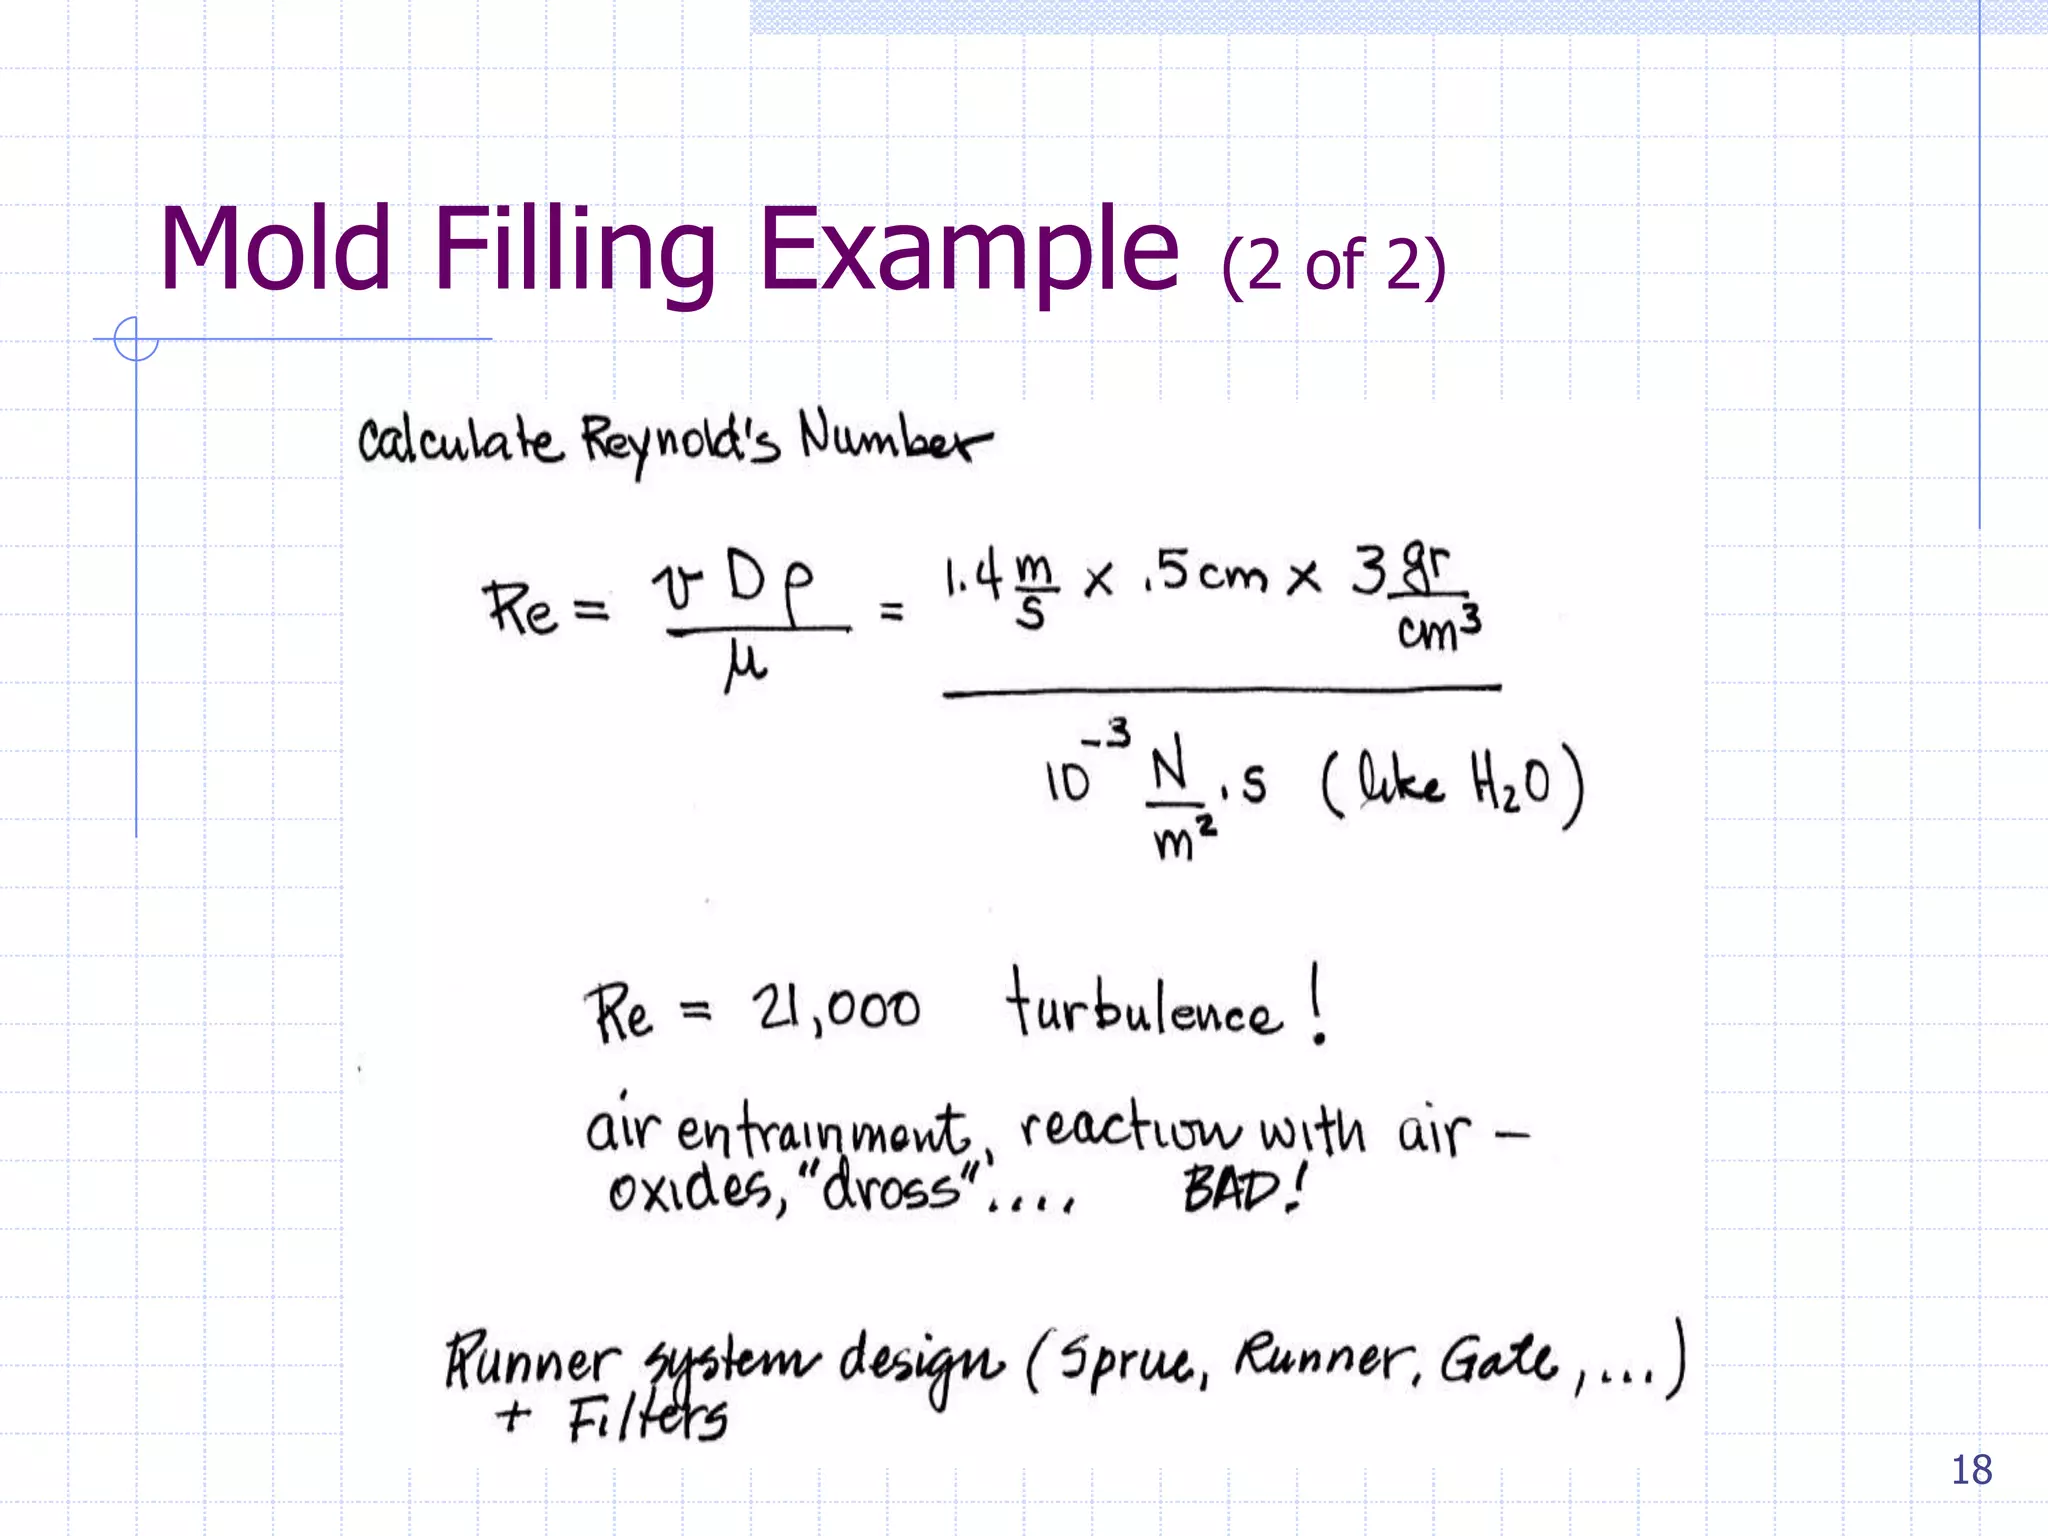 Mold Filling Example (2 of 2)
Calculate Reynold's Number
Re = v D ρ / μ = 1.4 m/s x .5cm x 3 gr/cm³ / 10⁻³ N/m² . s (like H₂O)
Re = 21,000 turbulence!
air entrainment, reaction with air –
oxides, "dross".... BAD!
Runner system design (Sprue, Runner, Gate, ...)
+ Filters
18